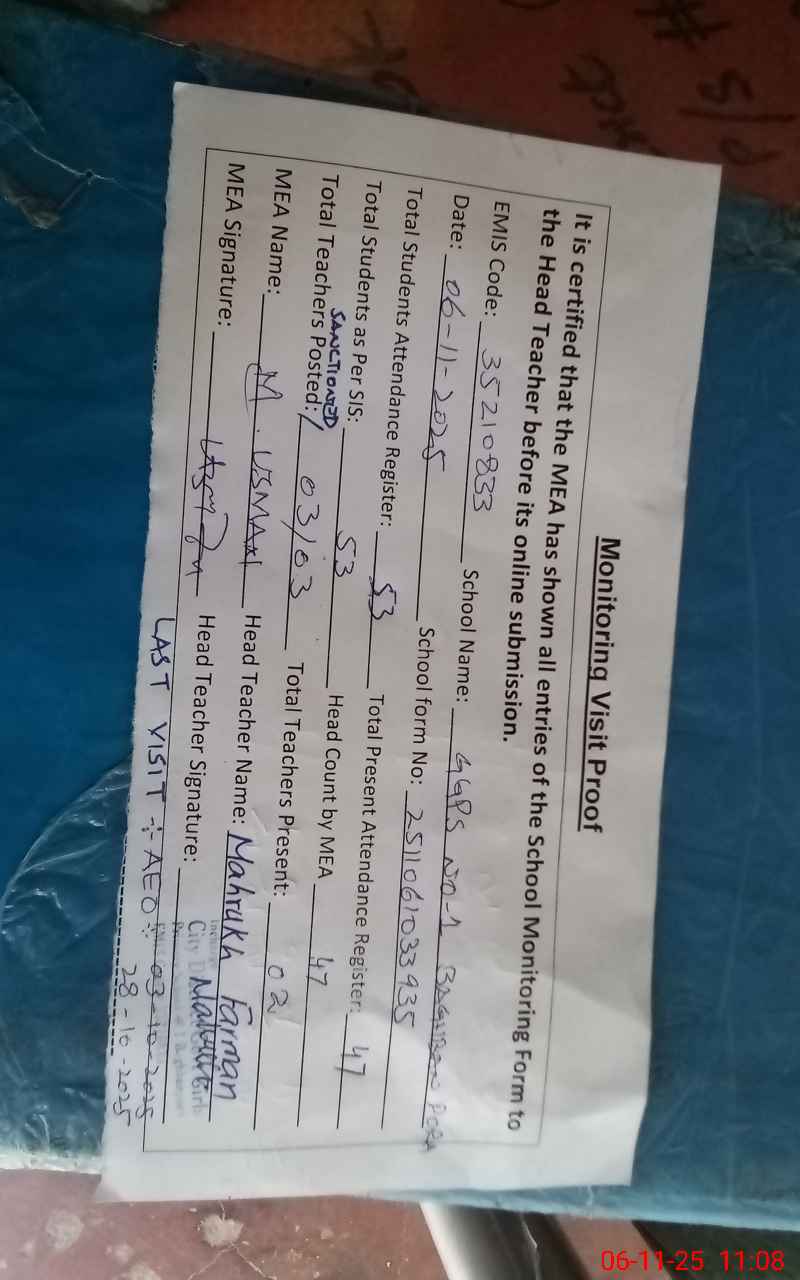 Monitoring Visit Proof
It is certified that the MEA has shown all entries of the School Monitoring Form to
the Head Teacher before its online submission.
EMIS Code: 35210833 School Name: GGPS NO-1 BAGHBAN PORA
Date: 06-11-2025 School form No: 2511061033935
Total Students Attendance Register: 53 Total Present Attendance Register: 47
Total Students as Per SIS: 53 Head Count by MEA 47
SANCTIONED
Total Teachers Posted:/ 03/03 Total Teachers Present: 02
MEA Name: M. USMAN Head Teacher Name: Mahrukh Farman
MEA Signature: Head Teacher Signature:
City D
LAST VISIT :- AEO :- 03-10-2025
28-10-2025
P/S #
06-11-25 11:08